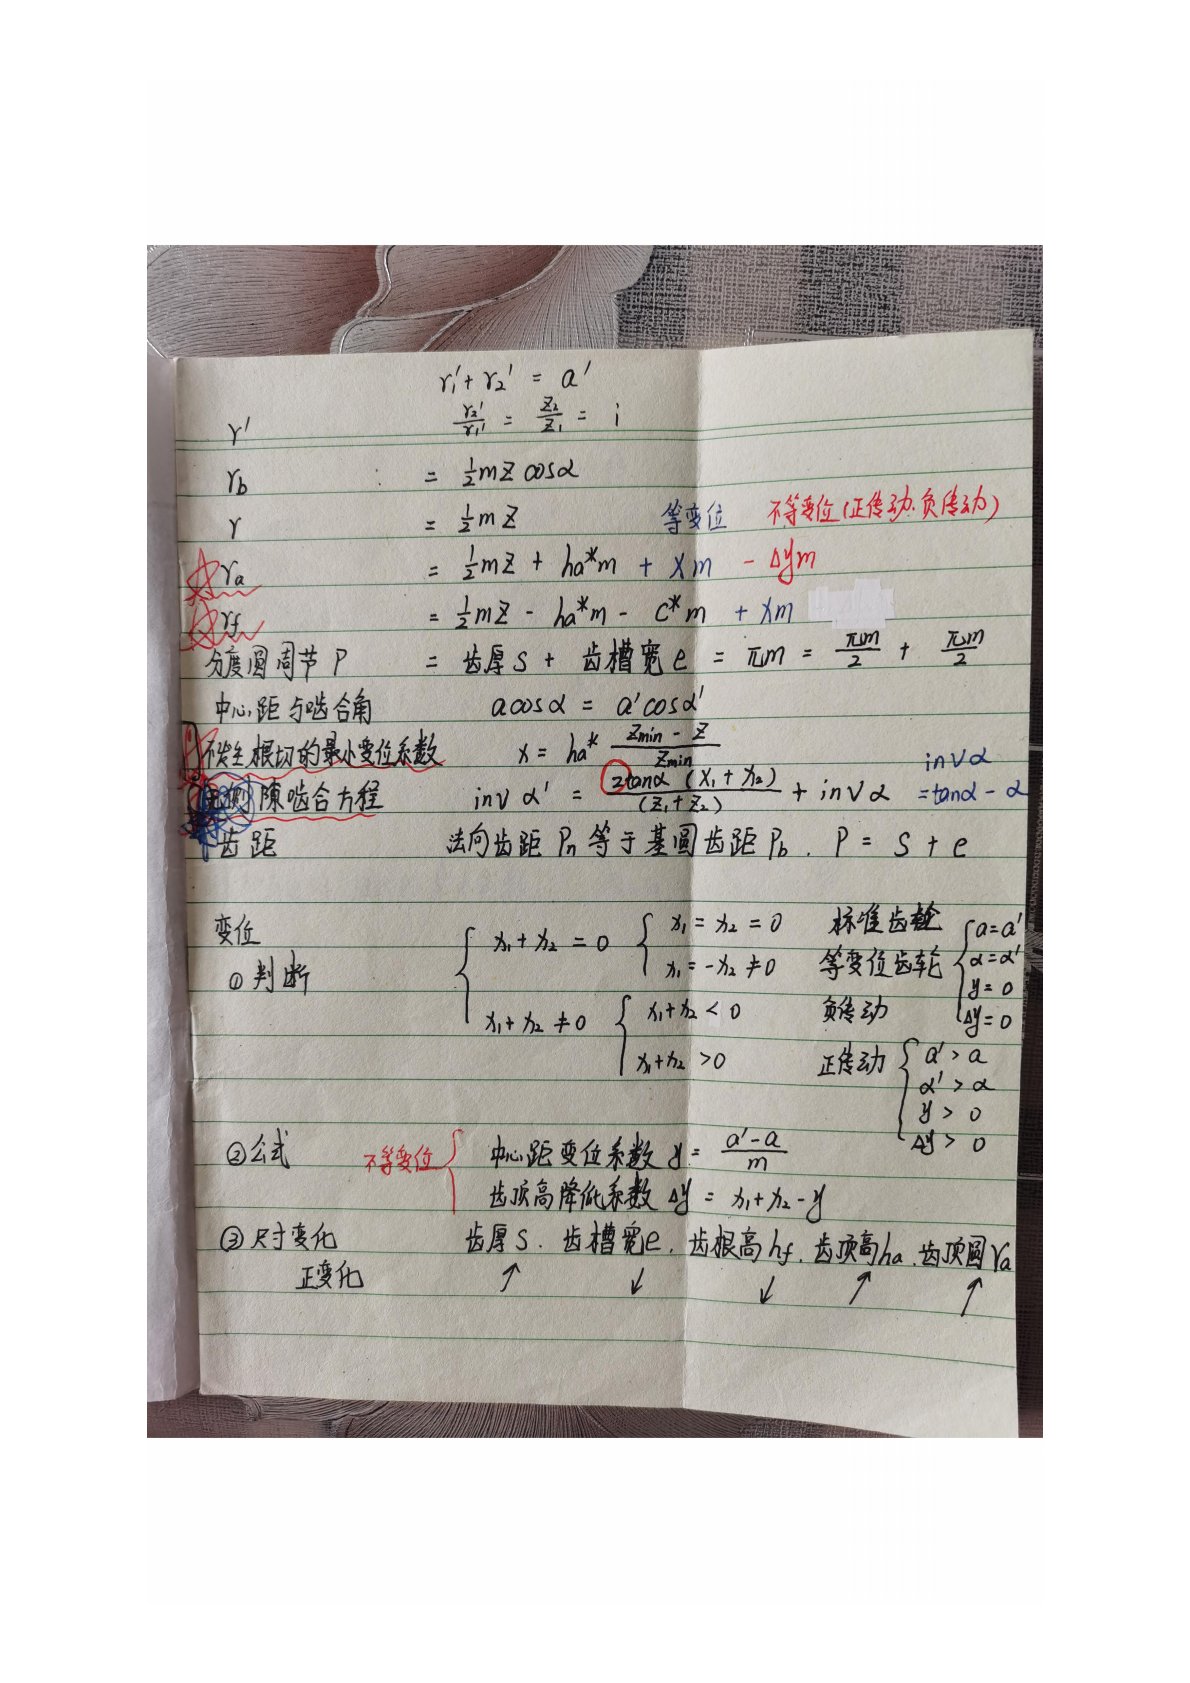 r₁'+ r₂' = a'
r' r₂'/r₁' = Z₂/Z₁ = i
rb = ½mZ cosα
r = ½mZ 等变位 不等变位(正传动、负传动)
ra = ½mZ + ha*m + xm - Δym
rf = ½mZ - ha*m - c*m + xm
分度圆周节P = 齿厚s + 齿槽宽e = πm = πm/2 + πm/2
中心距与啮合角 acosα = a'cosα'
不发生根切的最小变位系数 x = ha* (Zmin - Z)/Zmin
invα
隙啮合方程 invα' = 2tanα(x₁+x₂)/(Z₁+Z₂) + invα =tanα-α
齿距 法向齿距Pn等于基圆齿距Pb. P = s + e
变位 x₁+x₂=0 { x₁=x₂=0 标准齿轮 { a=a'
①判断 x₁=-x₂≠0 等变位齿轮 α=α'
y=0
x₁+x₂≠0 { x₁+x₂<0 负传动 Δy=0
x₁+x₂>0 正传动 { a'>a
α'>α
y>0
Δy>0
②公式 不等变位 { 中心距变位系数 y = (a'-a)/m
齿顶高降低系数 Δy = x₁+x₂-y
③尺寸变化 齿厚s. 齿槽宽e. 齿根高hf. 齿顶高ha. 齿顶圆ra
正变化 ↑ ↓ ↓ ↑ ↑